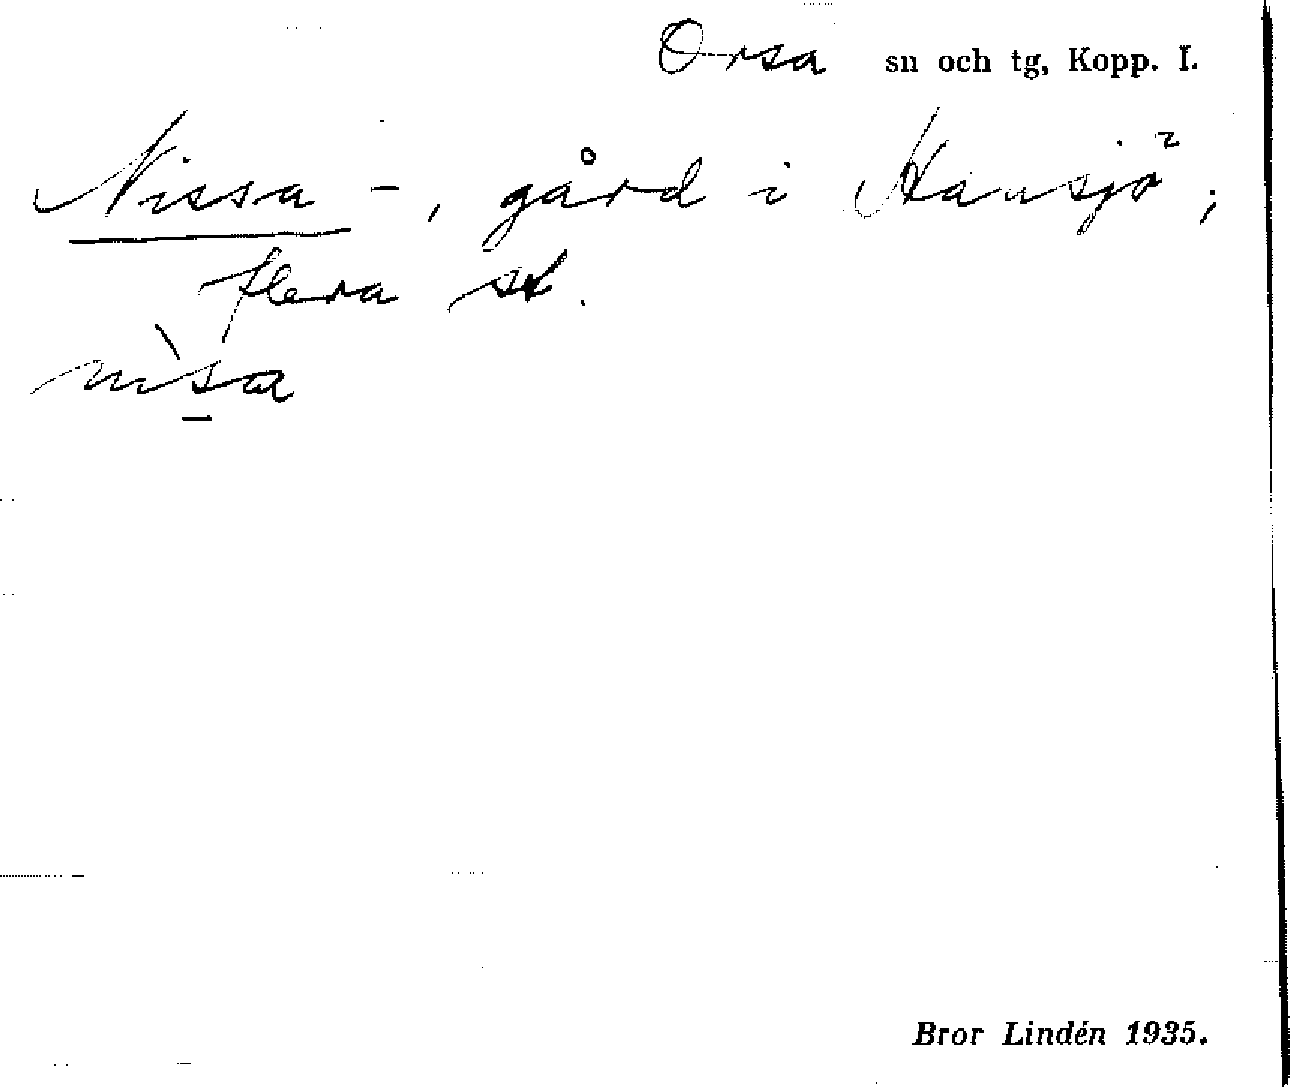 Orsa sn och tg, Kopp. l.
Nissa -, gård i Hansjö;
flera st.
nìsa
Bror Lindén 1935.